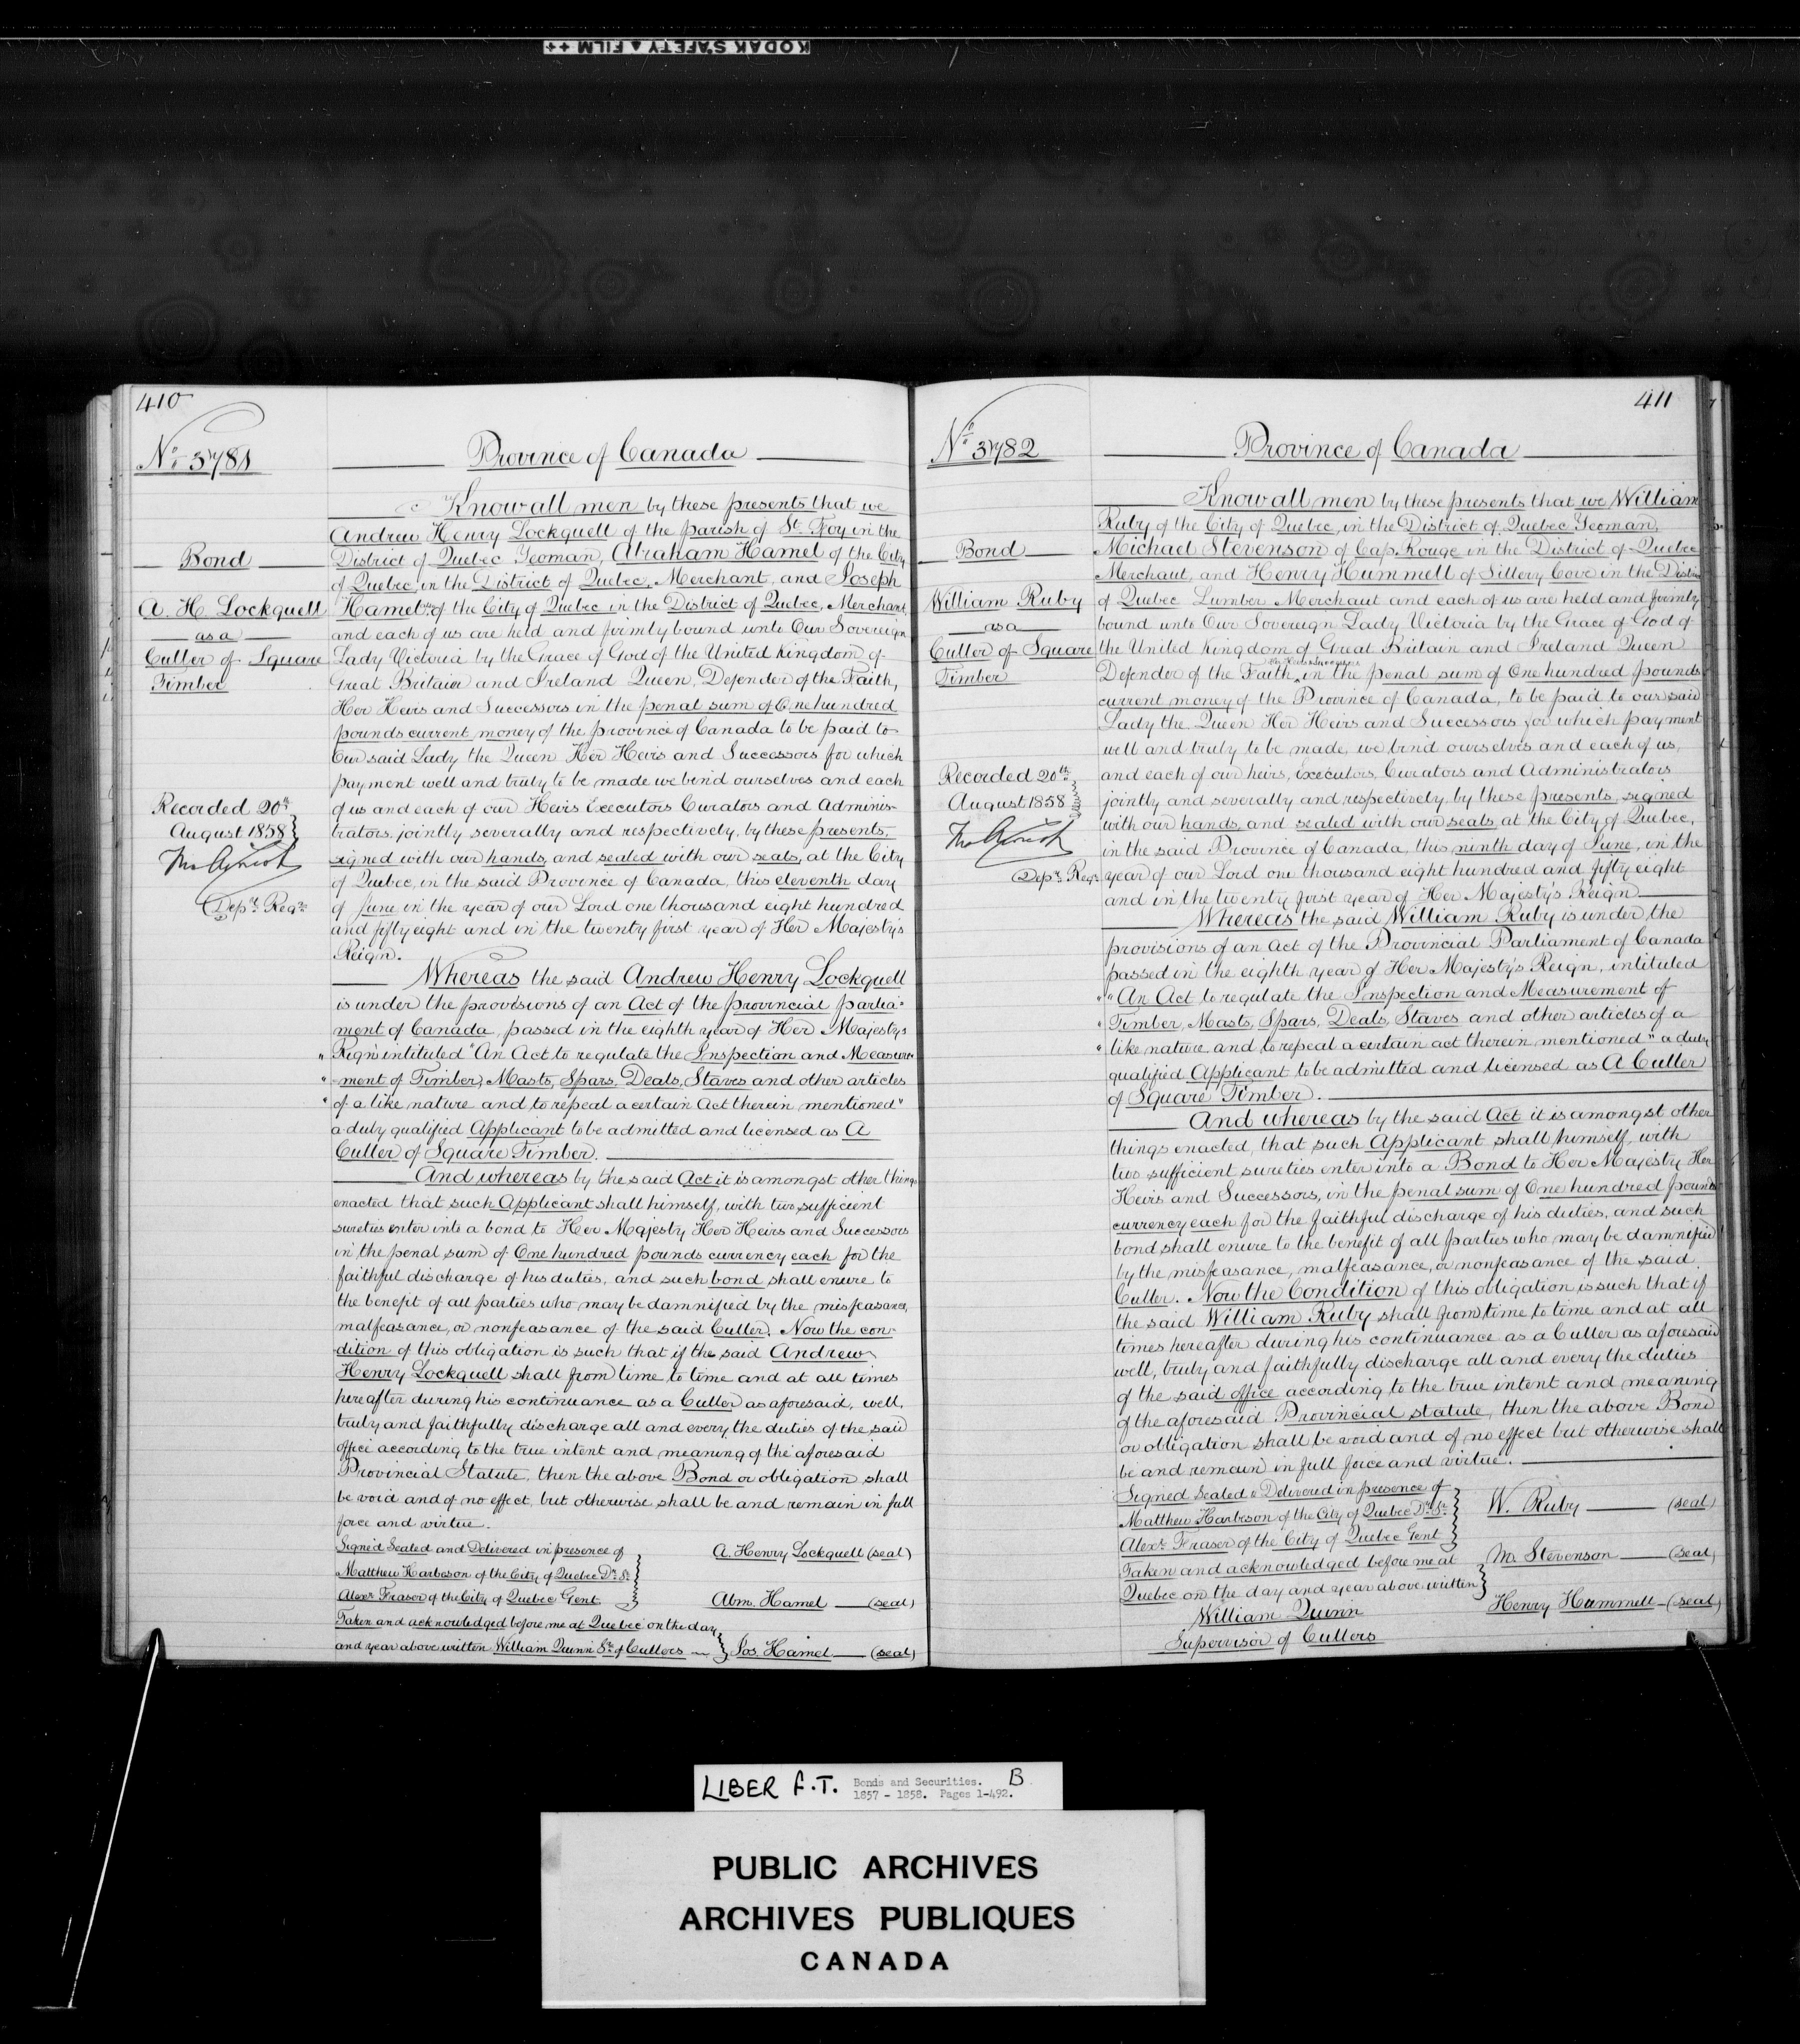 KODAK SAFETY ▲ FILM ++
410
No. 3781
Bond
A. H. Lockquell
as a
Culler of Square
Timber
Recorded 20th
August 1858
Depy. Regr.
Province of Canada
Know all men by these presents that we
Andrew Henry Lockquell of the parish of St. Foy in the
District of Quebec Yeoman, Abraham Hamel of the City
of Quebec, in the District of Quebec, Merchant, and Joseph
Hamel of the City of Quebec in the District of Quebec, Merchant,
and each of us are held and firmly bound unto Our Sovereign
Lady Victoria by the Grace of God of the United Kingdom of
Great Britain and Ireland Queen, Defender of the Faith,
Her Heirs and Successors in the penal sum of One hundred
pounds current money of the province of Canada to be paid to
Our said Lady the Queen Her Heirs and Successors for which
payment well and truly to be made we bind ourselves and each
of us and each of our Heirs Executors Curators and Adminis-
trators, jointly severally and respectively, by these presents,
signed with our hands, and sealed with our seals, at the City
of Quebec, in the said Province of Canada, this eleventh day
of June in the year of our Lord one thousand eight hundred
and fifty eight and in the twenty first year of Her Majesty's
Reign.
Whereas the said Andrew Henry Lockquell
is under the provisions of an Act of the provincial parlia-
ment of Canada, passed in the eighth year of Her Majesty's
" Reign intituled "An Act to regulate the Inspection and Measure-
" ment of Timber, Masts, Spars, Deals, Staves and other articles
" of a like nature and to repeal a certain Act therein mentioned"
a duly qualified Applicant to be admitted and licensed as A
Culler of Square Timber.
And whereas by the said Act it is amongst other things
enacted that such Applicant shall himself, with two sufficient
sureties enter into a bond to Her Majesty Her Heirs and Successors
in the penal sum of One hundred pounds currency each for the
faithful discharge of his duties, and such bond shall enure to
the benefit of all parties who may be damnified by the misfeasance,
malfeasance, or nonfeasance of the said Culler. Now the con-
dition of this obligation is such that if the said Andrew
Henry Lockquell shall from time to time and at all times
hereafter during his continuance as a Culler as aforesaid, well,
truly and faithfully discharge all and every, the duties of the said
office according to the true intent and meaning of the aforesaid
Provincial Statute, then the above Bond or obligation shall
be void and of no effect, but otherwise shall be and remain in full
force and virtue.
Signed Sealed and Delivered in presence of
A. Henry Lockquell (seal)
Matthew Harbeson of the City of Quebec Dr. St.
Alexr. Fraser of the City of Quebec Gent
Abm. Hamel (seal)
Taken and acknowledged before me at Quebec on the day
and year above written William Quinn Sr. of Cullers
Jos. Hamel (seal)
411
No. 3782
Bond
William Ruby
as a
Culler of Square
Timber
Recorded 20th
August 1858
Depy. Regr.
Province of Canada
Know all men by these presents that we William
Ruby of the City of Quebec, in the District of Quebec, Yeoman,
Michael Stevenson of Cap Rouge in the District of Quebec
Merchant, and Henry Hummell of Sillery Cove in the Distri
of Quebec Lumber Merchant and each of us are held and firmly
bound unto Our Sovereign Lady Victoria by the Grace of God of
the United Kingdom of Great Britain and Ireland Queen
Her Heirs & Successors
Defender of the Faith, in the penal sum of One hundred pounds
current money of the Province of Canada, to be paid to our said
Lady the Queen Her Heirs and Successors for which payment
well and truly to be made, we bind ourselves and each of us,
and each of our heirs, Executors, Curators and Administrators
jointly and severally and respectively, by these presents, signed
with our hands, and sealed with our seals, at the City of Quebec,
in the said Province of Canada, this ninth day of June, in the
year of our Lord one thousand eight hundred and fifty eight
and in the twenty first year of Her Majesty's Reign
Whereas the said William Ruby is under the
provisions of an Act of the Provincial Parliament of Canada
passed in the eighth year of Her Majesty's Reign, intituled
" "An Act to regulate the Inspection and Measurement of
" Timber, Masts, Spars, Deals, Staves and other articles of a
" like nature and to repeal a certain act therein mentioned" a duly
qualified Applicant to be admitted and licensed as A Culler
of Square Timber.
And whereas by the said Act it is amongst other
things enacted, that such Applicant shall himself, with
two sufficient sureties enter into a Bond to Her Majesty Her
Heirs and Successors, in the penal sum of One hundred pounds
currency each for the faithful discharge of his duties, and such
bond shall enure to the benefit of all parties who may be damnified
by the misfeasance, malfeasance, or nonfeasance of the said
Culler. Now the Condition of this obligation is such that if
the said William Ruby shall from time to time and at all
times hereafter during his continuance as a Culler as aforesaid
well, truly and faithfully discharge all and every the duties
of the said office according to the true intent and meaning
of the aforesaid Provincial statute, then the above Bond
or obligation shall be void and of no effect but otherwise shall
be and remain in full force and virtue.
Signed Sealed & Delivered in presence of
W. Ruby (seal)
Matthew Harbeson of the City of Quebec Dr. St.
Alexr. Fraser of the City of Quebec Gent
Taken and acknowledged before me at
M. Stevenson (seal)
Quebec on the day and year above written
William Quinn
Henry Hummell (seal)
Supervisor of Cullers
LIBER F.T. Bonds and Securities. B
1857 - 1858. Pages 1-492.
PUBLIC ARCHIVES
ARCHIVES PUBLIQUES
CANADA